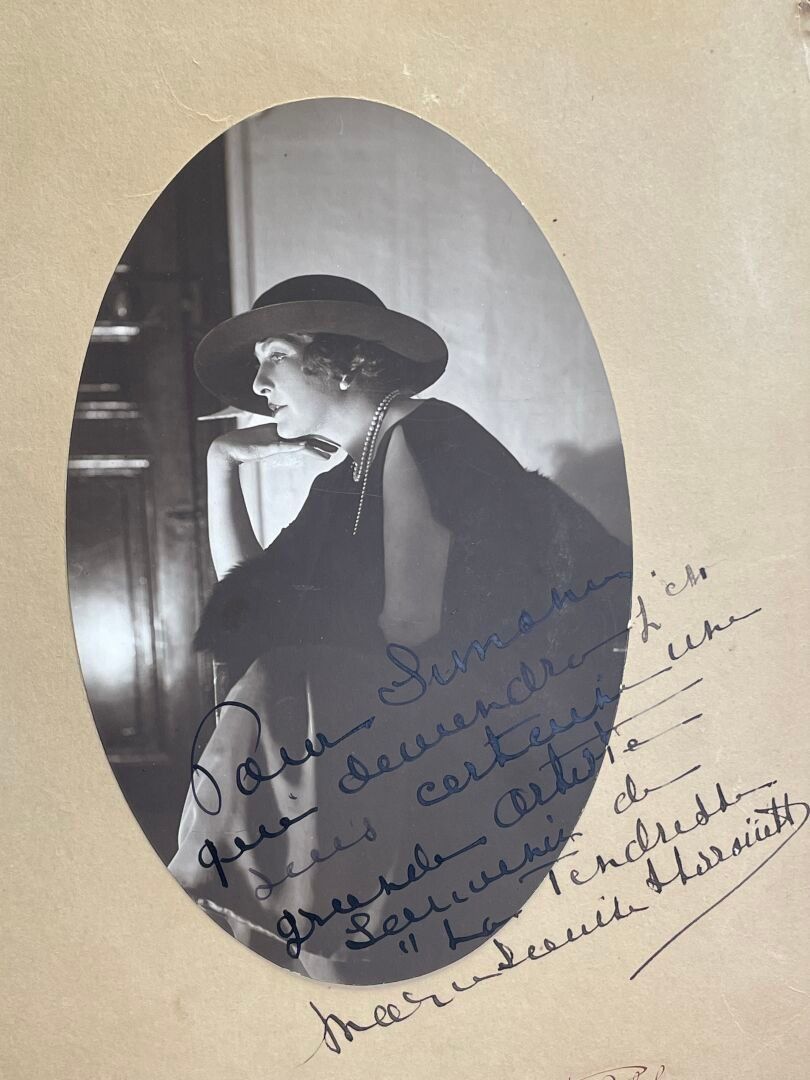 Pour Simone
qui deviendra j'en
suis certaine une
grande artiste
Souvenir de
"La Tendresse
Marie Louise